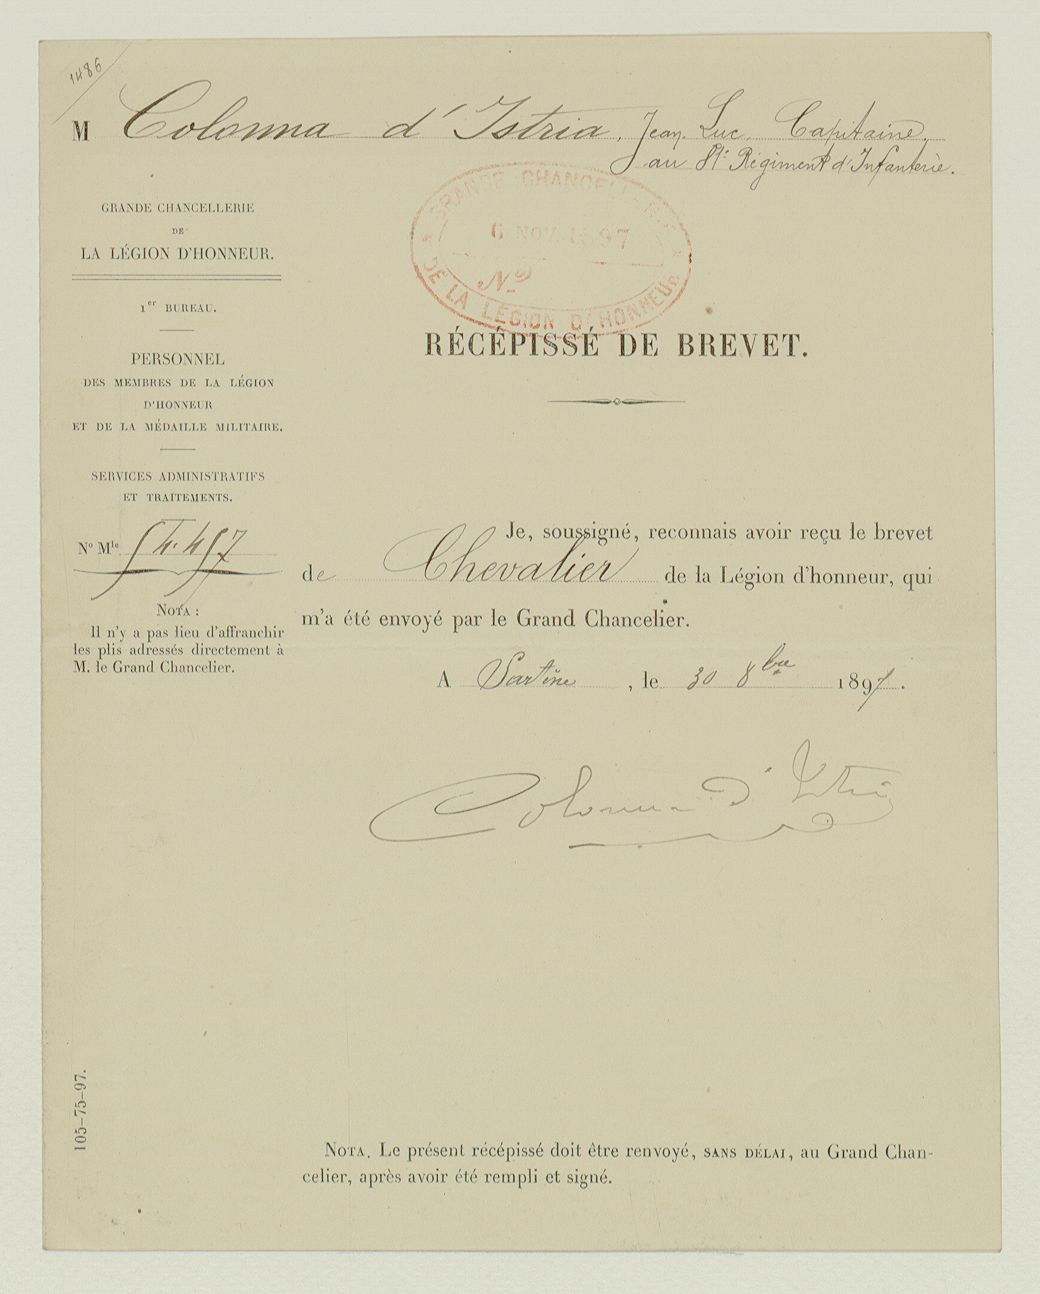 1486
M Colonna d'Istria, Jean Luc Capitaine,
au Régiment d'Infanterie.
GRANDE CHANCELLERIE
DE
LA LÉGION D'HONNEUR.
1er BUREAU.
PERSONNEL
DES MEMBRES DE LA LÉGION
D'HONNEUR
ET DE LA MÉDAILLE MILITAIRE.
SERVICES ADMINISTRATIFS
ET TRAITEMENTS.
No Mle 54.497
NOTA :
Il n'y a pas lieu d'affranchir
les plis adressés directement à
M. le Grand Chancelier.
GRANDE CHANCELLERIE
6 NOV. 1897
No
DE LA LÉGION D'HONNEUR
RÉCÉPISSÉ DE BREVET.
Je, soussigné, reconnais avoir reçu le brevet
de Chevalier de la Légion d'honneur, qui
m'a été envoyé par le Grand Chancelier.
A Sartène, le 30 8bre 1897.
Colonna d'Istria
105-75-97.
NOTA. Le présent récépissé doit être renvoyé, SANS DÉLAI, au Grand Chan-
celier, après avoir été rempli et signé.